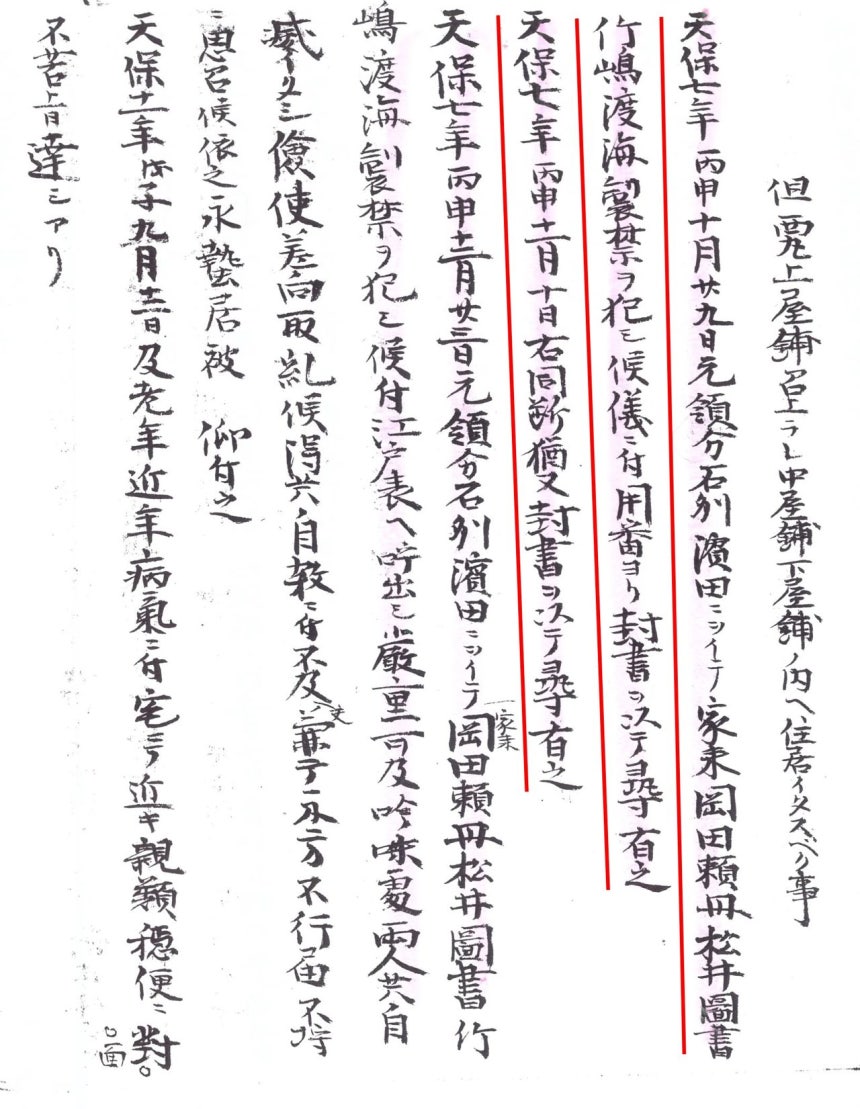 但西丸上屋鋪召上ラレ中屋鋪下屋鋪ノ内ヘ住居イタスベク事
天保七年丙申十月廿九日元領分石州濱田ニヲイテ家来岡田頼母松井圖書
竹嶋渡海製禁ヲ犯シ候儀ニ付用番ヨリ封書ヲ以テ尋有之
天保七年丙申十二月十日右同断猶又封書ヲ以テ尋有之
天保七年丙申十二月廿三日元領分石州濱田ニヲイテ家来岡田頼母松井圖書竹
嶋渡海製禁ヲ犯シ候付江戸表ヘ呼出シ厳重可及吟味處両人共自
滅イタシ儉使差向取糺候得共自殺ニ付不及 兼テ不行届不
ニ思召候依之永蟄居被 仰付之
天保十一年庚子九月十二日及老年近年病氣ニ付宅ニテ近キ親類穏便ニ對。
。面
不苦旨達シアリ